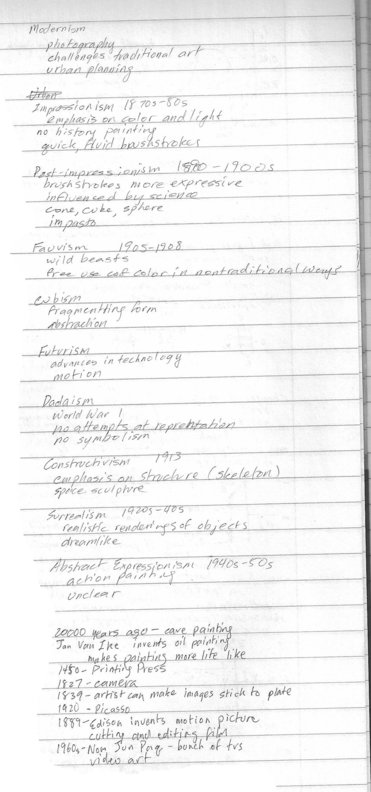 Modernism
photography
challenges traditional art
urban planning
Impressionism 1870s-80s
emphasis on color and light
no history painting
quick, fluid brushstrokes
Post-impressionism 1890-1900s
brushstrokes more expressive
influensed by science
cone, cube, sphere
impasto
Fauvism 1905-1908
wild beasts
free use of color in nontraditional ways
cubism
fragmentting form
abstraction
Futurism
advances in technology
motion
Dadaism
World War 1
no attempts at reprentation
no symbolism
Constructivism 1913
emphasis on structure (skeleton)
space sculpture
Surrealism 1920s-40s
realistic renderings of objects
dreamlike
Abstract Expressionism 1940s-50s
action painting
unclear
20000 years ago - cave painting
Jan Van Ike invents oil painting
makes painting more life like
1450 - Printing Press
1827 - camera
1839 - artist can make images stick to plate
1920 - Picasso
1889 - Edison invents motion picture
cutting and editing film
1960s - Nom Jun - bunch of tvs
video art